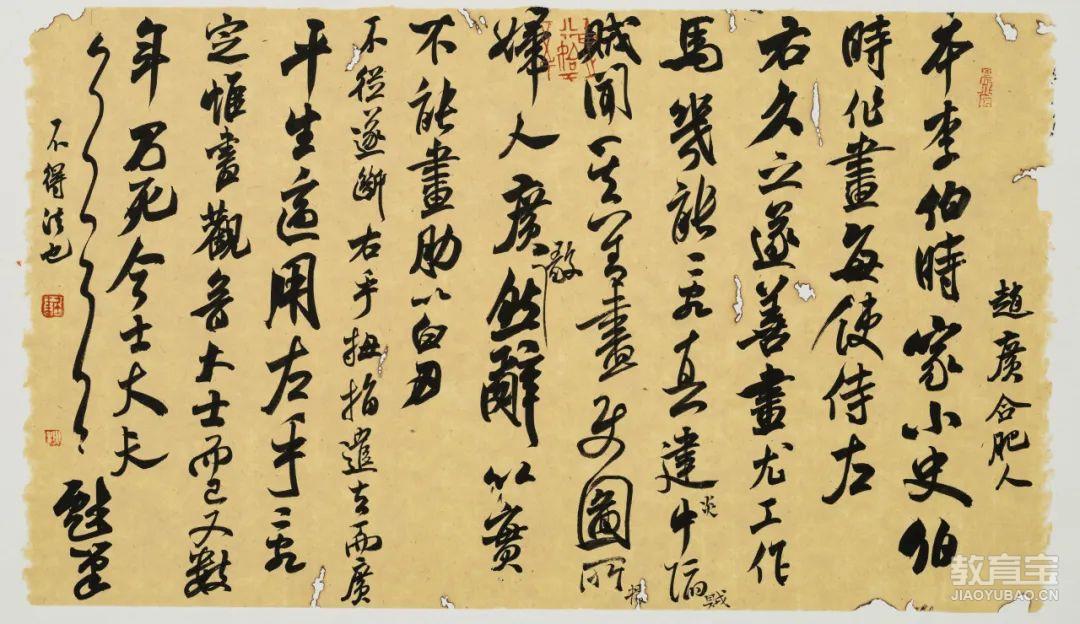 趙廣合肥人
本李伯時家小史伯
時作畫每使侍左
右久之遂善畫尤工作
馬幾能亂真建炎中陷賊
賊聞其善畫使圖所擄
婦人廣毅然辭以實
不能畫脅以白刃
不從遂斷右手拇指遣去而廣
平生適用左手亂
定惟畫觀音大士而已又數
年乃死今士大夫
不得法也
教育宝
JIAOYUBAO.CN